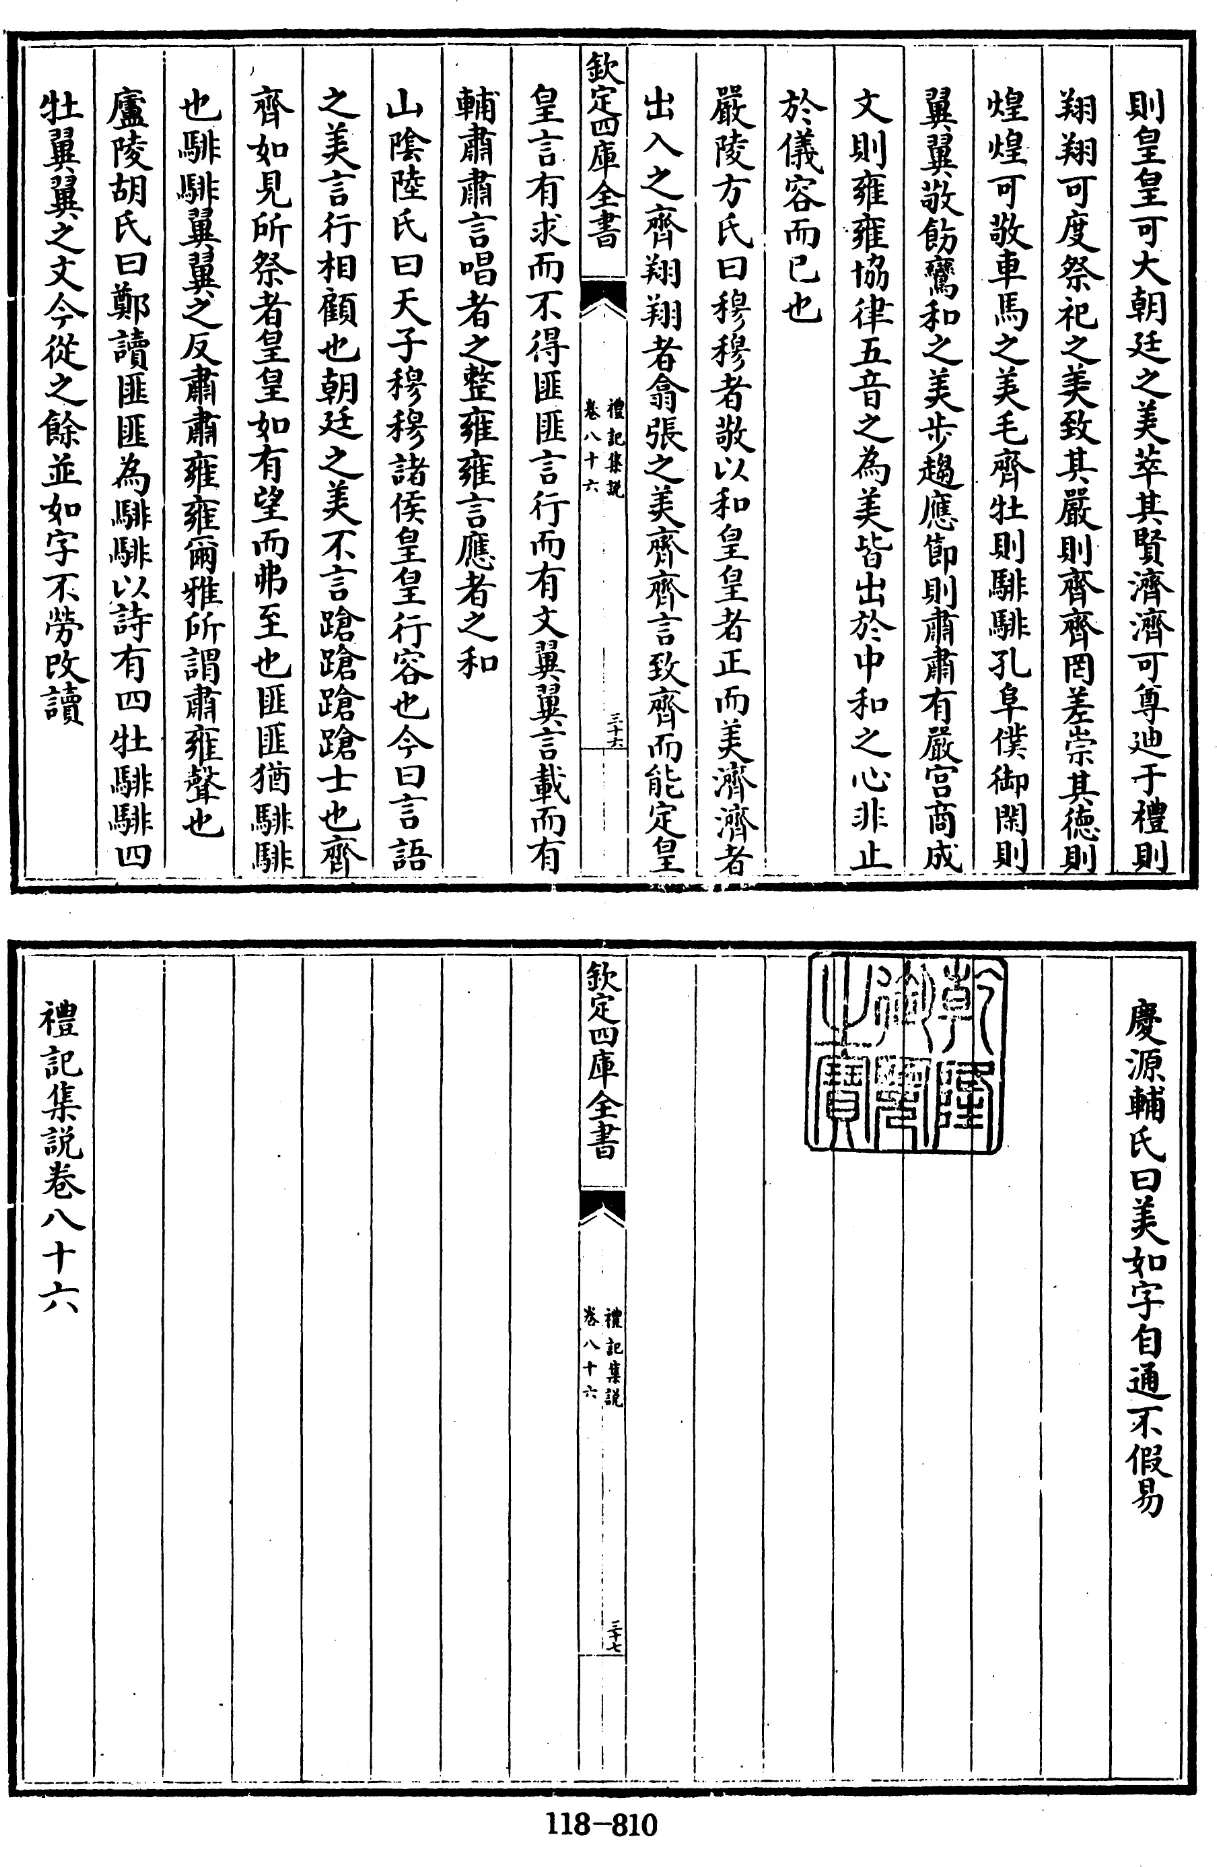 則皇皇可大朝廷之美萃其賢濟濟可尊迪于禮則
翔翔可度祭祀之美致其嚴則齊齊罔差崇其德則
煌煌可敬車馬之美毛齊牡則騑騑孔阜僕御閑則
翼翼敬飭鸞和之美步趨應節則肅肅有嚴宫商成
文則雍雍協律五音之為美皆出於中和之心非止
於儀容而已也
嚴陵方氏曰穆穆者敬以和皇皇者正而美濟濟者
出入之齊翔翔者翕張之美齊齊言致齊而能定皇
欽定四庫全書
禮記集說
卷八十六
三十六
皇言有求而不得匪匪言行而有文翼翼言載而有
輔肅肅言唱者之整雍雍言應者之和
山陰陸氏曰天子穆穆諸侯皇皇行容也今曰言語
之美言行相顧也朝廷之美不言蹌蹌蹌蹌士也齊
齊如見所祭者皇皇如有望而弗至也匪匪猶騑騑
也騑騑翼翼之反肅肅雍雍爾雅所謂肅雍聲也
廬陵胡氏曰鄭讀匪匪為騑騑以詩有四牡騑騑四
牡翼翼之文今從之餘並如字不勞改讀
慶源輔氏曰美如字自通不假易
乾隆御覽之寶
欽定四庫全書
禮記集說
卷八十六
三十七
禮記集說卷八十六
118-810